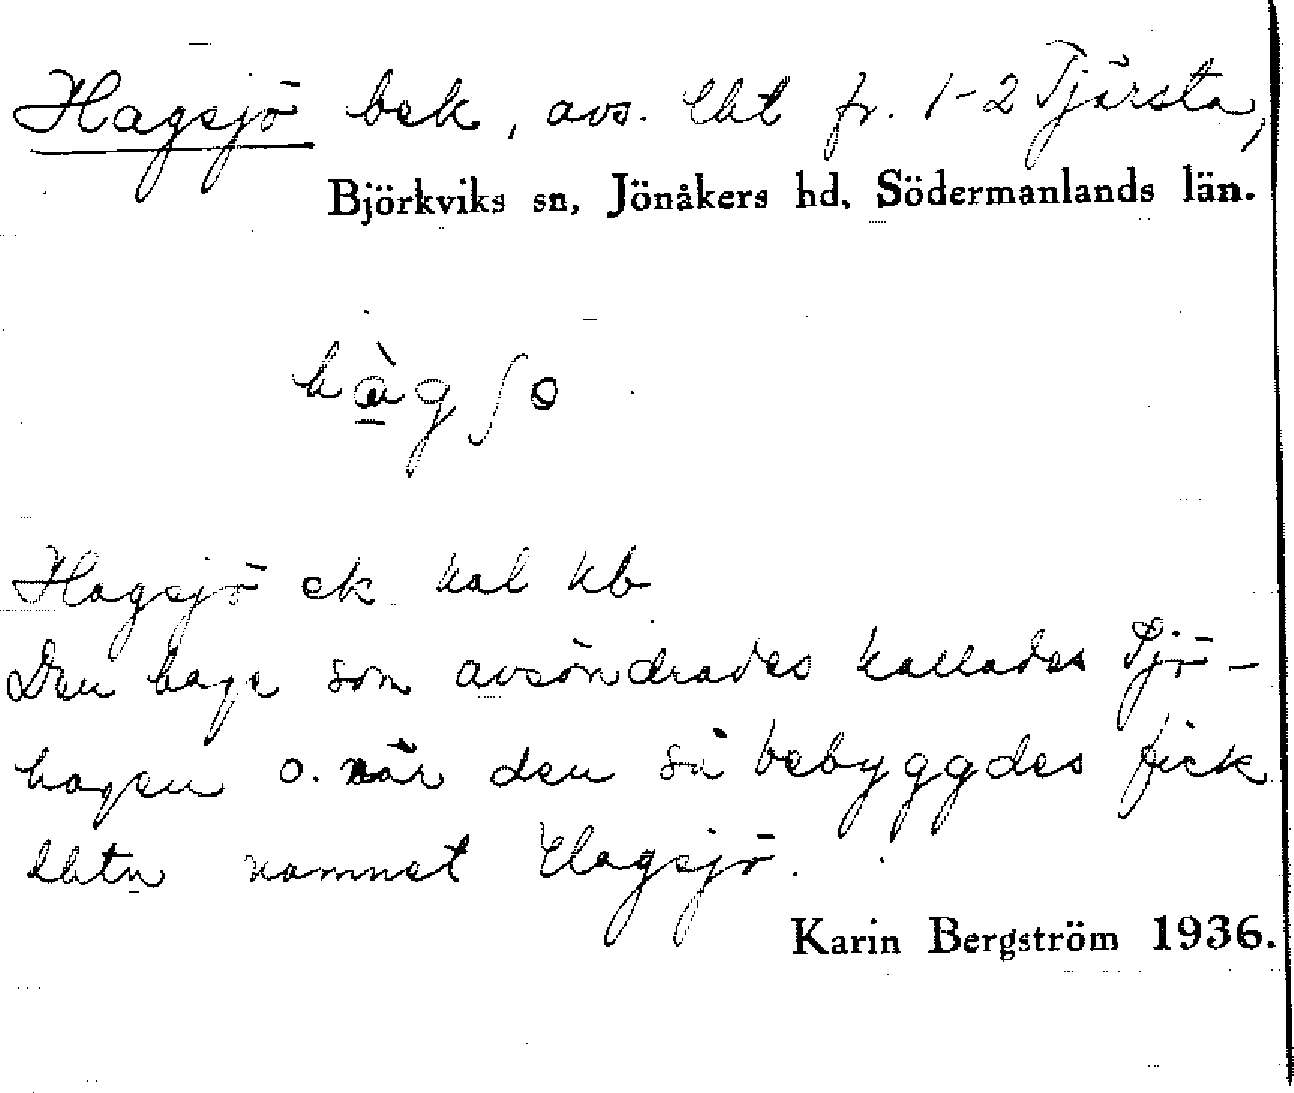 Hagsjö bek, avs. lht fr. 1-2 Tjärsta,
Björkviks sn, Jönåkers hd, Södermanlands län.
hàgʃo
Hagsjö ek kal kb
Den hage som avsöndrades kallades Sjö-
hagen o. när den så bebyggdes fick
lhtn namnet Hagsjö.
Karin Bergström 1936.